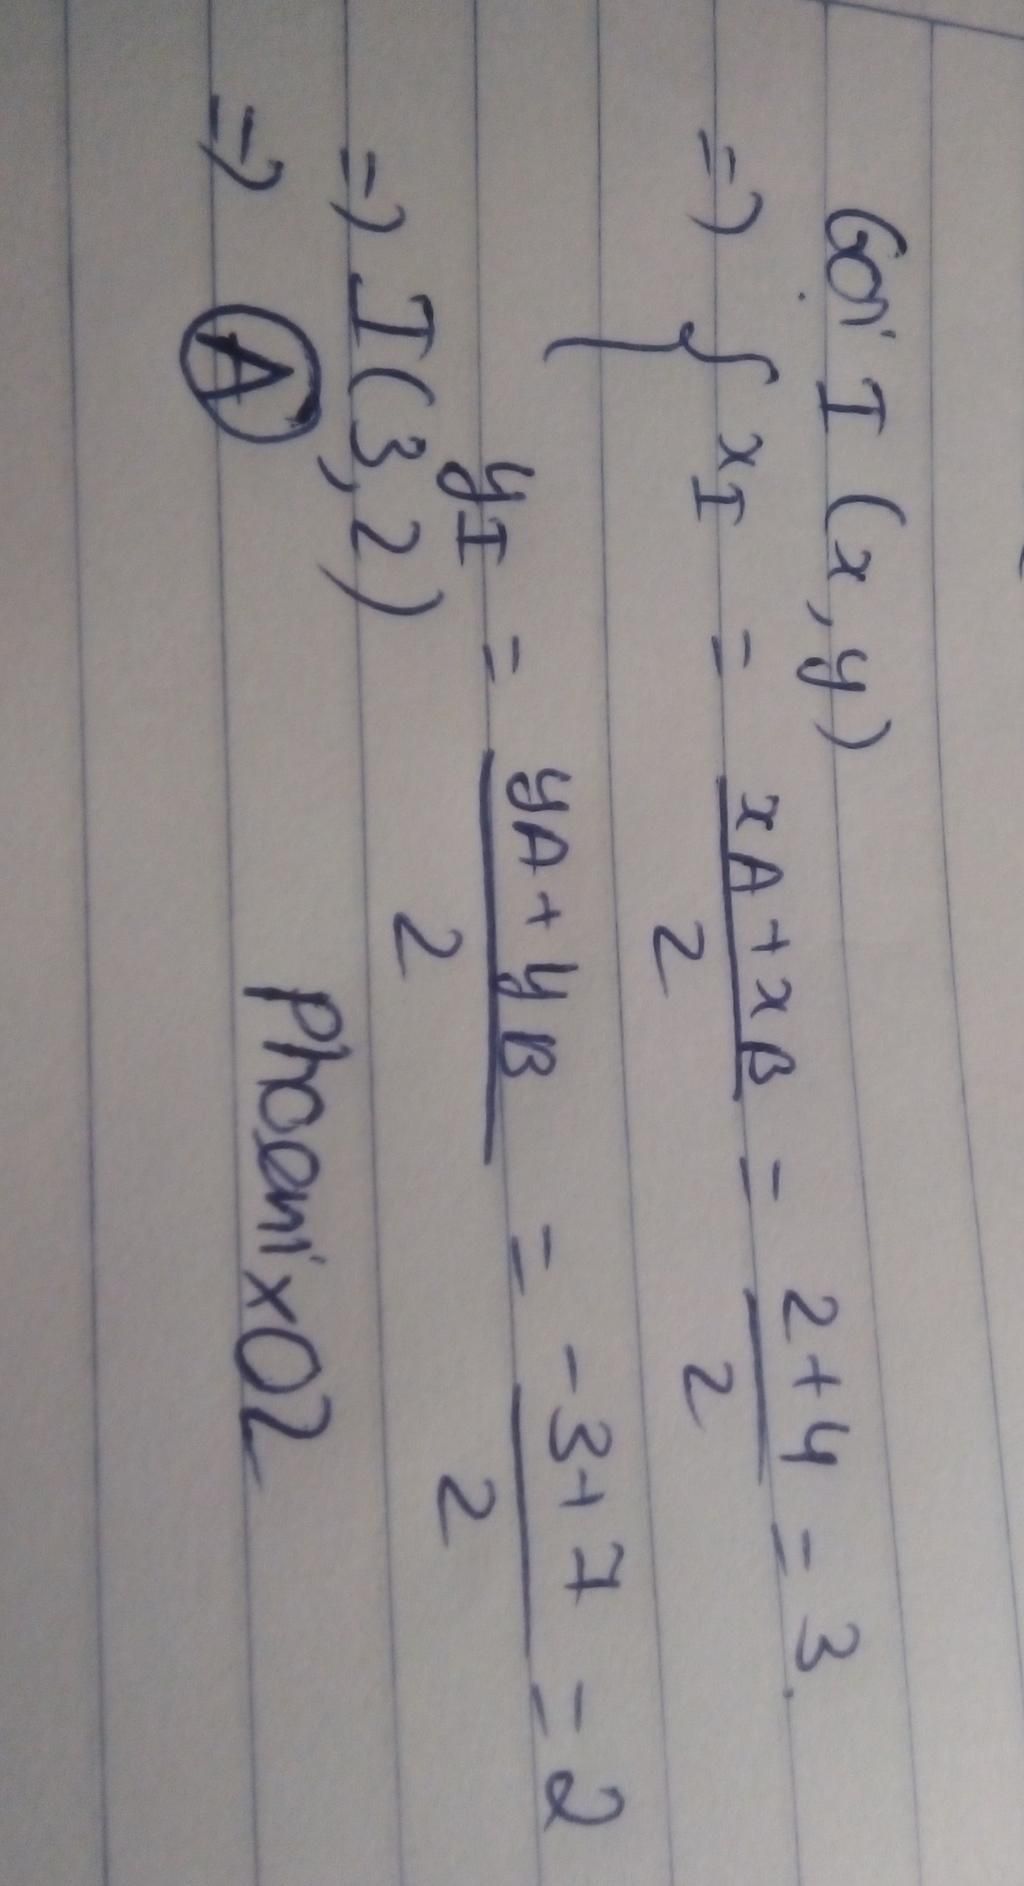 Gọi I (x, y)
=> { xI = xA + xB / 2 = 2 + 4 / 2 = 3.
yI = yA + yB / 2 = -3 + 7 / 2 = 2
=> I (3, 2)
=> A
Phoenix02